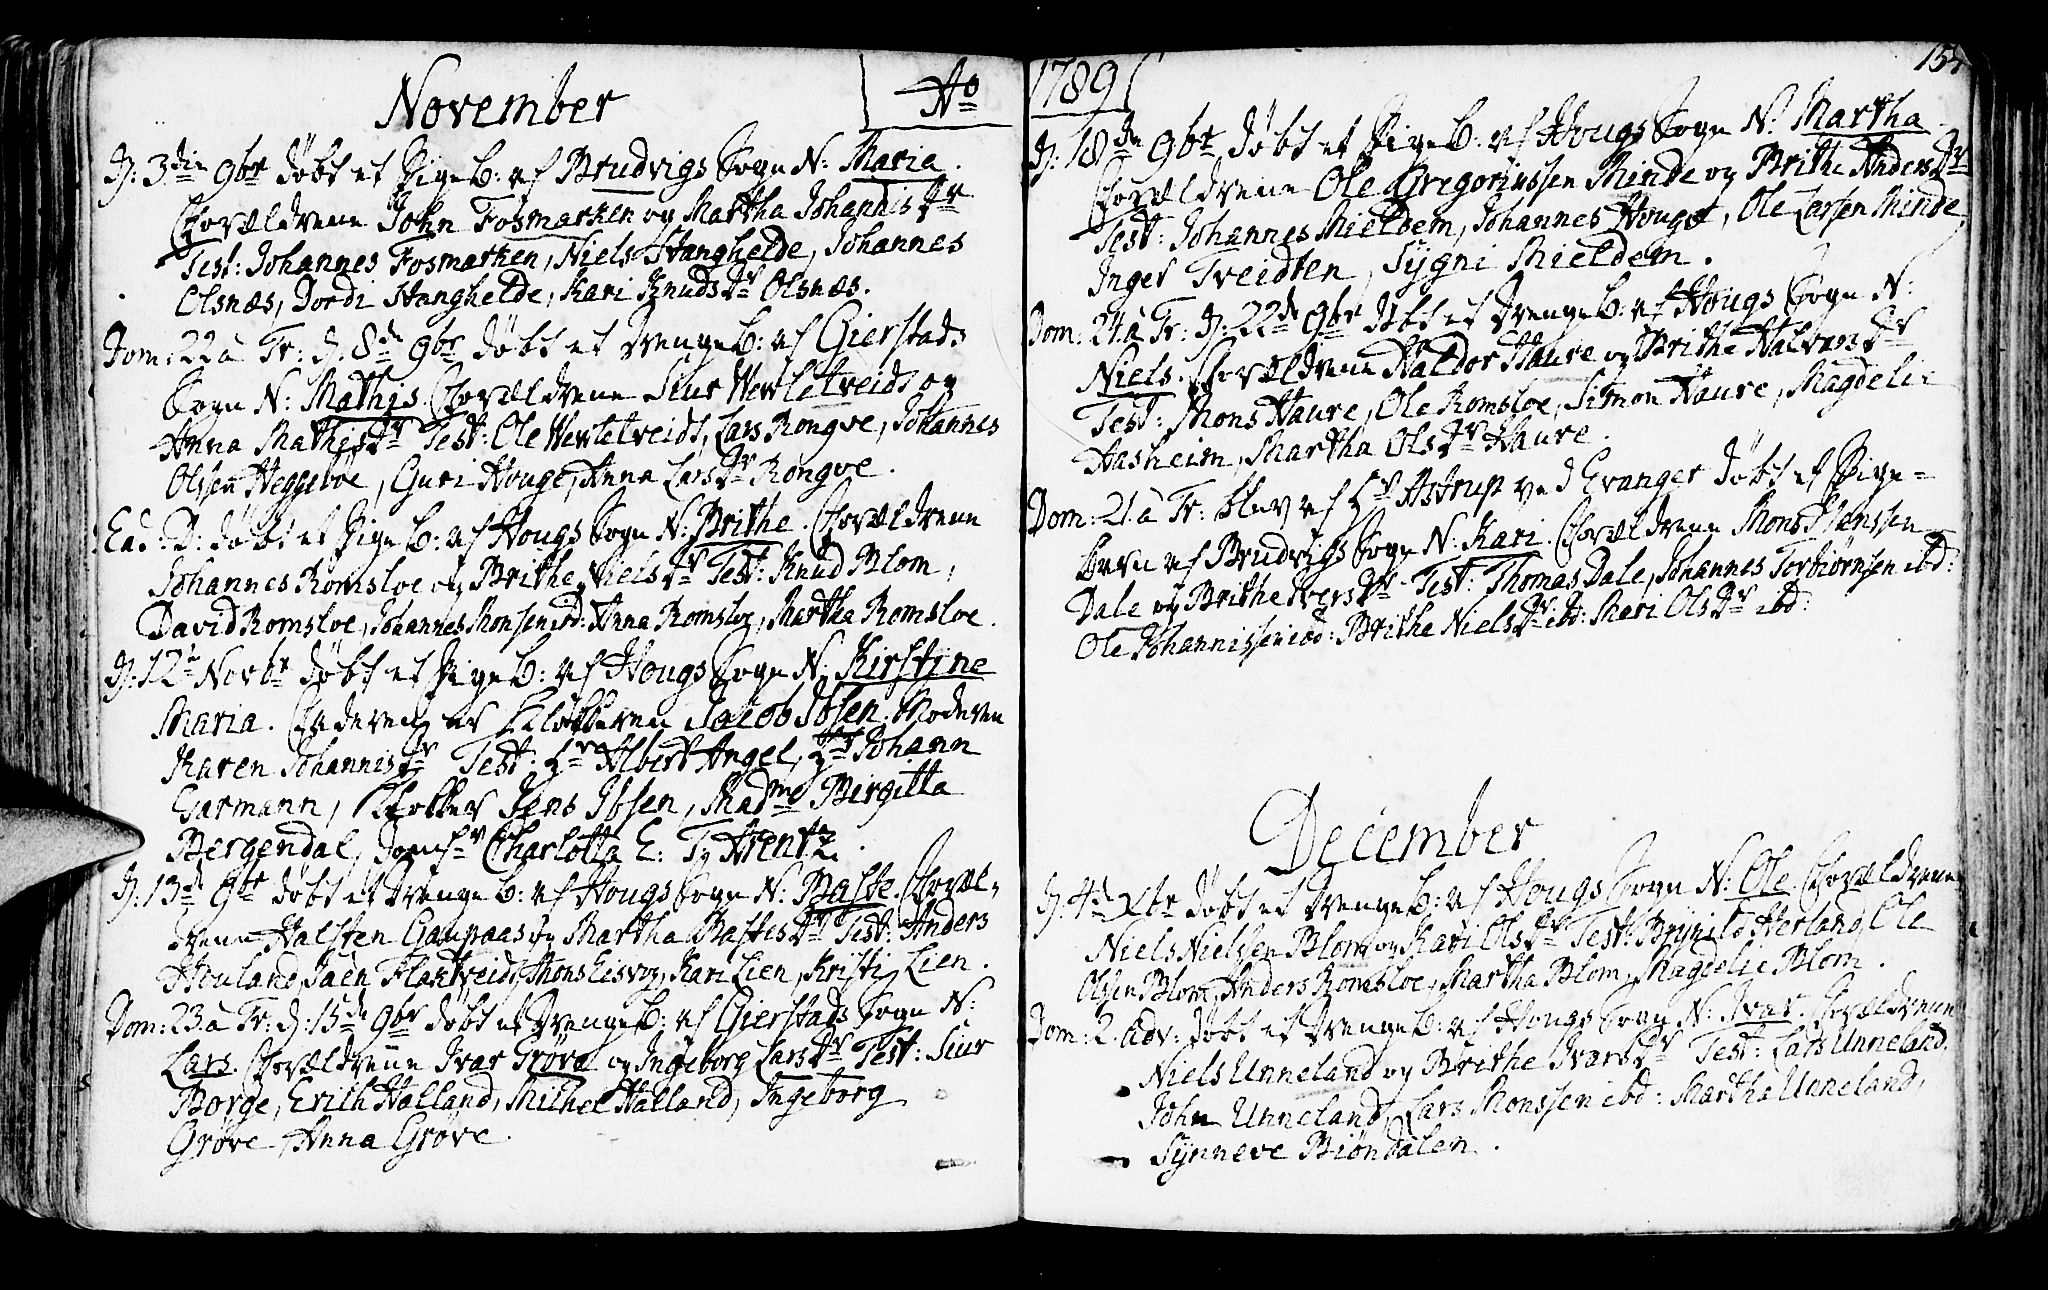 November
Ao
D: 3die 9br døbt et Pigeb: af Brudvigs Sogn N: Maria.
Forældrene John Fosmarken og Martha Johannis Dr
Test: Johannes Fosmarken, Niels Stanghelde, Johannes
Olsnæs, Dordi Stanghelde, Kari Knuds Dr Olsnæs.
Dom: 22 à Tr: D: 8de 9br døbt et Drengeb: af Gierstads
Sogn N: Mathis. Forældrene Siur Wevletveidt og
Anna Mathis Dr Test: Ole Wevletveidt, Lars Rongve, Johannes
Olssen Heggeböe, Guri Houge, Anna Lars Dr Rongve.
Ead: D: døbt et Pigeb: af Hougs Sogn N: Brithe. Forældrene
Johannes Romsloe og Brithe Niels Dr Test: Knud Blom,
David Romsloe, Johannes Monsen ibd: Anna Romsloe, Martha Romsloe.
D: 12te Novbr døbt et Pigeb: af Hougs Sogn N: Kirstine
Maria. Faderen er Klokkeren Jacob Ibsen. Moderen
Karen Johannis Dr Test: Hr Albert Angel, Hr Johann
Garmann, Klokker Jens Ibsen, Madme Birgitta
Bergendal, Jomfr Charlotta E: T: Arentz.
D: 13de 9br døbt et Drengeb: af Hougs Sogn N: Baste. Foræl-
drene Halsten Gaupaas og Martha Bastes Dr Test: Anders
Houland, Jaen Flaktveidt, Mons Eisvog, Kari Lien, Kristi Lien.
Dom: 23 à Tr: D: 15de 9br døbt et Drengeb: af Gierstads Sogn N:
Lars. Forældrene Ivar Gröve og Ingeborg Lars Dr Test: Siur
Borge, Erich Halland, Michel Halland, Ingeborg
Gröve, Anna Gröve.
1789
D: 18de 9br døbt et Pigeb: af Hougs Sogn N: Martha.
Forældrene Ole Gregoriussen Minde og Brithe Anders Dr
Test: Johannes Mieldem, Johannes Houge, Ole Larsen Minde,
Inger Tveidten, Sygni Mieldem.
Dom: 24 à Tr: D: 22de 9br døbt et Drengeb: af Hougs Sogn N:
Niels. Forældrene Haldor Haure og Brithe Halvars Dr
Test: Mons Haure, Ole Romsloe, Simon Haure, Magdelie
Aasheim, Martha Ols Dr Haure.
Dom: 21 à Tr: blev af Hr Astrup ved Evanger døbt et Pige-
barn af Brudvigs Sogn N: Kari. Forældrene Mons Monssen
Dale og Brithe Ivers Dr Test: Thomas Dale, Johannes Torbiörnsen ibd:
Ole Johannissen ibd: Brithe Niels Dr ibd: Mari Ols Dr ibd:
December
D: 4de Xbr døbt et Drengeb: af Hougs Sogn N: Ole. Forældrene
Niels Nielssen Blom og Kari Ols Dr Test: Brynild Herland, Ole
Olssen Blom, Anders Romsloe, Martha Blom, Magdelie Blom.
Dom: 2. Adv: døbt et Drengeb: af Hougs Sogn N: Ivar. Forældrene
Niels Unneland og Brithe Ivars Dr Test: Lars Unneland,
John Unneland, Lars Monssen ibd: Martha Unneland,
Synneve Biöndalen.